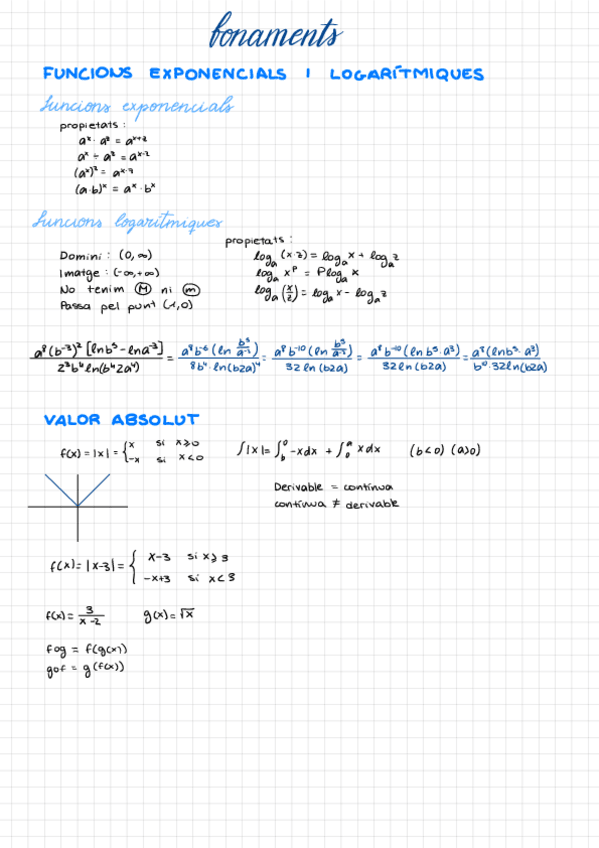 fonaments
FUNCIONS EXPONENCIALS I LOGARÍTMIQUES
funcions exponencials
propietats:
aˣ · aᶻ = aˣ⁺ᶻ
aˣ ÷ aᶻ = aˣ⁻ᶻ
(aˣ)ᶻ = aˣ·ᶻ
(a·b)ˣ = aˣ · bˣ
funcions logarítmiques
propietats:
Domini: (0, ∞)
Imatge: (-∞, +∞)
No tenim M ni m
Passa pel punt (1,0)
logₐ (x·z) = logₐ x + logₐ z
logₐ xᴾ = P logₐ x
logₐ (x/z) = logₐ x - logₐ z
a⁸(b⁻³)² [ln b⁵ - ln a⁻³] / 2³b⁴ ln(b⁴2a⁴) = a⁸b⁻⁶ (ln b⁵/a⁻³) / 8b⁴·ln(b2a)⁴ = a⁸b⁻¹⁰ (ln b⁵/a⁻³) / 32 ln(b2a) = a⁸b⁻¹⁰ (ln b⁵·a³) / 32 ln(b2a) = a⁸(ln b⁵·a³) / b¹⁰·32 ln(b2a)
VALOR ABSOLUT
f(x) = |x| = { x si x≥0
-x si x<0
∫|x| = ∫_b^0 -x dx + ∫_0^a x dx (b<0) (a>0)
Derivable = contínua
contínua ≠ derivable
f(x) = |x-3| = { x-3 si x≥3
-x+3 si x<3
f(x) = 3/(x-2) g(x) = √x
fog = f(g(x))
gof = g(f(x))